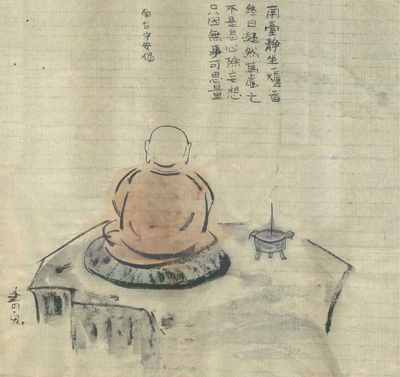 南臺静坐一爐香
終日凝然萬慮亡
不是息心除妄想
只因無事可思量
南台守安偈